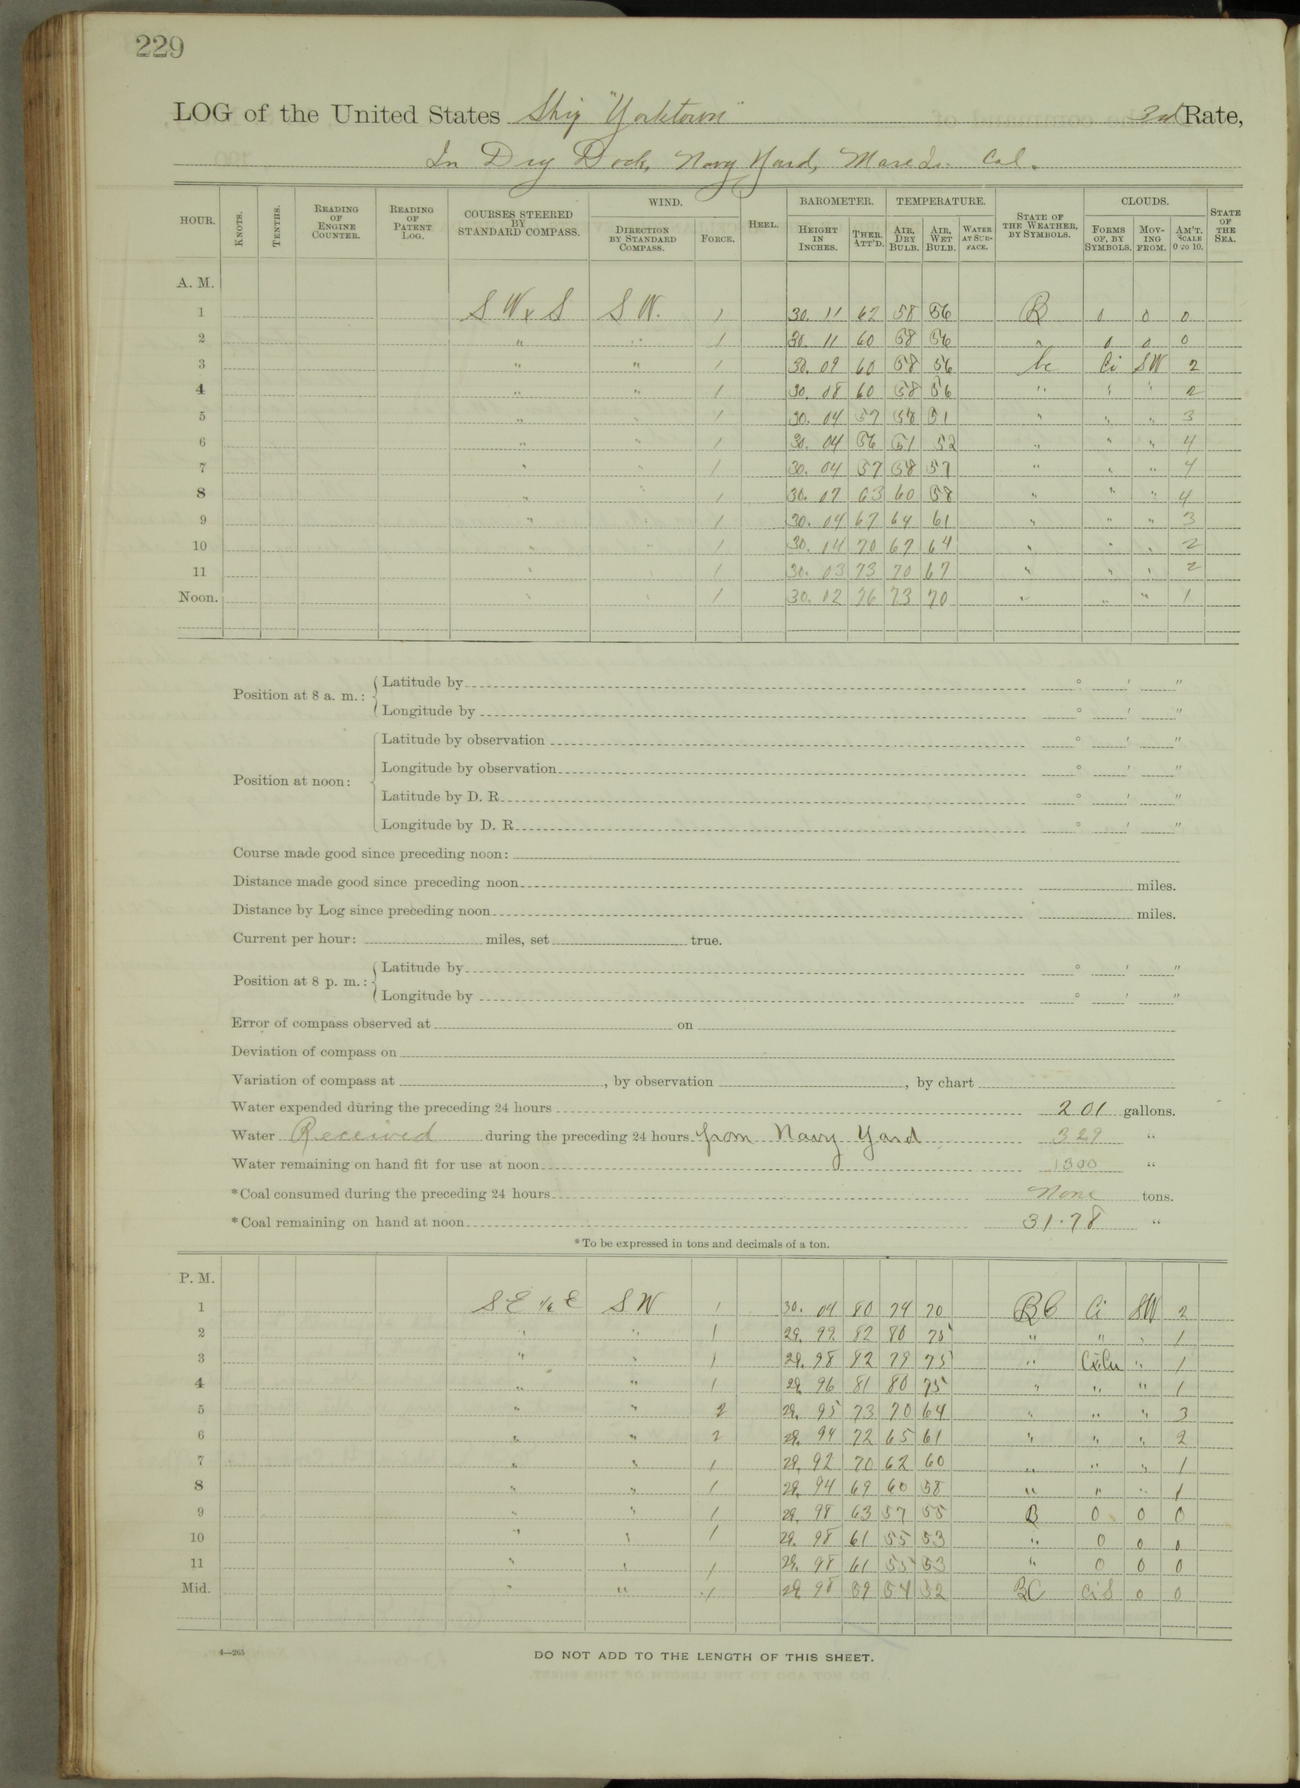 229
LOG of the United States Ship "Yorktown" 3rd Rate,
In Dry Dock, Navy Yard, Mare Is. Cal.
HOUR. KNOTS. TENTHS. READING OF ENGINE COUNTER. READING OF PATENT LOG. COURSES STEERED BY STANDARD COMPASS. WIND. DIRECTION BY STANDARD COMPASS. FORCE. HEEL. BAROMETER. HEIGHT IN INCHES. THER. ATT'D. TEMPERATURE. AIR, DRY BULB. AIR, WET BULB. WATER AT SURFACE. STATE OF THE WEATHER, BY SYMBOLS. CLOUDS. FORMS OF, BY SYMBOLS. MOVING FROM. AM'T. SCALE 0 TO 10. STATE OF THE SEA.
A. M.
1 S W x S S W. 1 30. 11 62 58 56 B 0 0 0
2 " " 1 30. 11 60 58 56 " 0 0 0
3 " " 1 30. 09 60 58 56 bc Ci SW 2
4 " " 1 30. 08 60 58 56 " " " 2
5 " " 1 30. 04 57 58 51 " " " 3
6 " " 1 30. 04 56 51 52 " " " 4
7 " " 1 30. 04 57 58 57 " " " 4
8 " " 1 30. 07 63 60 58 " " " 4
9 " " 1 30. 04 67 64 61 " " " 3
10 " " 1 30. 04 70 67 64 " " " 2
11 " " 1 30. 03 73 70 67 " " " 2
Noon. " " 1 30. 02 76 73 70 " " " 1
Position at 8 a. m.: Latitude by ° ' "
Longitude by ° ' "
Position at noon: Latitude by observation ° ' "
Longitude by observation ° ' "
Latitude by D. R. ° ' "
Longitude by D. R. ° ' "
Course made good since preceding noon:
Distance made good since preceding noon miles.
Distance by Log since preceding noon miles.
Current per hour: miles, set true.
Position at 8 p. m.: Latitude by ° ' "
Longitude by ° ' "
Error of compass observed at on
Deviation of compass on
Variation of compass at , by observation , by chart
Water expended during the preceding 24 hours 201 gallons.
Water Received during the preceding 24 hours from Navy Yard 329 "
Water remaining on hand fit for use at noon 1300 "
*Coal consumed during the preceding 24 hours None tons.
*Coal remaining on hand at noon 31.78 "
*To be expressed in tons and decimals of a ton.
P. M.
1 S E ¼ E S W 1 30. 04 80 74 70 BC Ci SW 2
2 " " 1 29. 99 82 80 75 " " " 1
3 " " 1 29. 98 82 79 75 " Ci.Cu " 1
4 " " 1 29. 96 81 80 75 " " " 1
5 " " 2 29. 95 73 70 64 " " " 3
6 " " 2 29. 94 72 65 61 " " " 2
7 " " 1 29. 92 70 62 60 " " " 1
8 " " 1 29. 94 69 60 58 " " " 1
9 " " 1 29. 98 63 57 55 B 0 0 0
10 " " 1 29. 98 61 55 53 " 0 0 0
11 " " 1 29. 98 61 55 53 " 0 0 0
Mid. " " 1 29. 98 59 54 52 BC Ci S 0 0
4—265
DO NOT ADD TO THE LENGTH OF THIS SHEET.